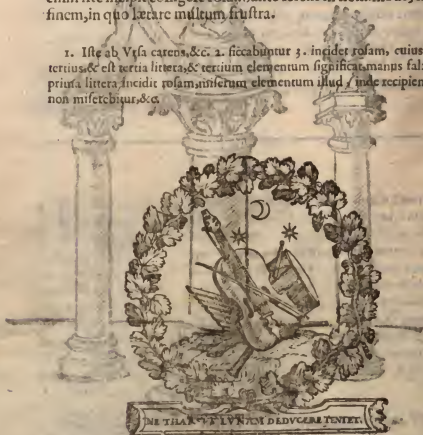 finem, in quo lætare multum, frustra.
1. Iste ab Vrsa carens, &c. 2. siccabuntur 3. incidet rosam, cuius
tertius, & est tertia littera, & tertium elementum significat, manus fal
prima littera, incidit rosam, miserum elementum illud / inde recipien
non miserebitur, &c.
LVNAM DEDVCERE TENTET.